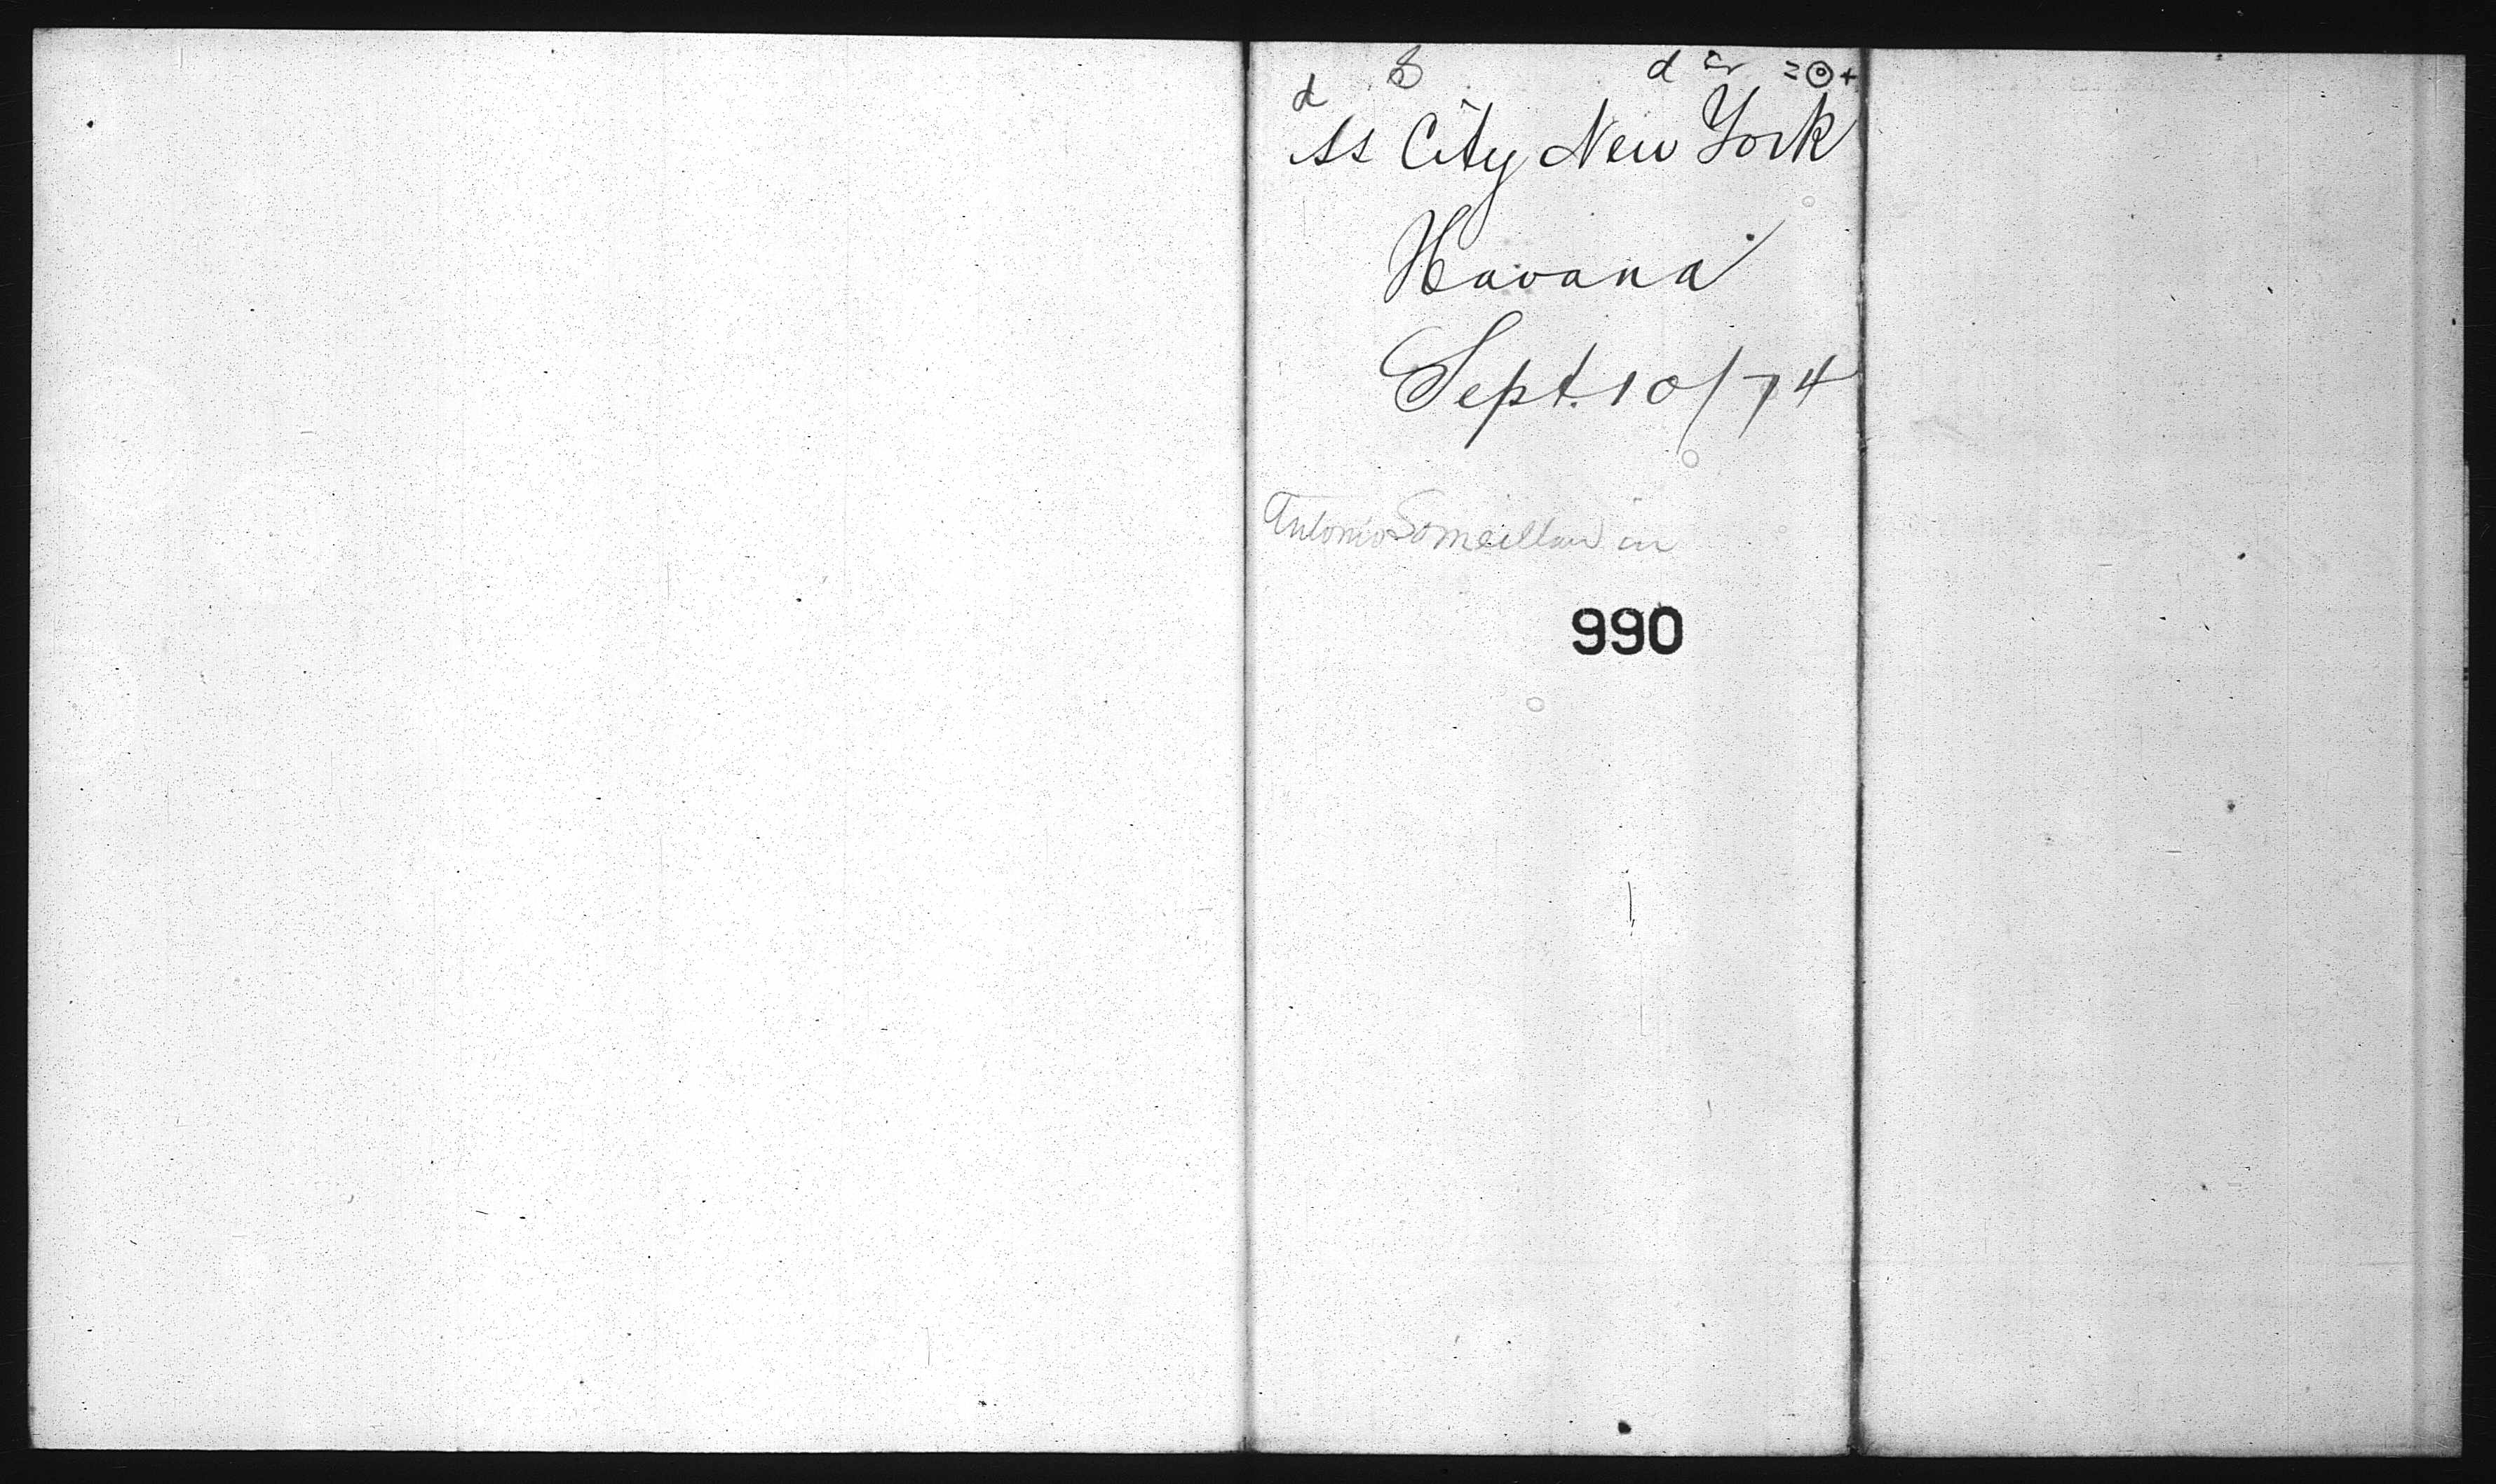 d 8 d =⊙+
SS City New York
Havana
Sept. 10/74
Antonio Someillan in
990